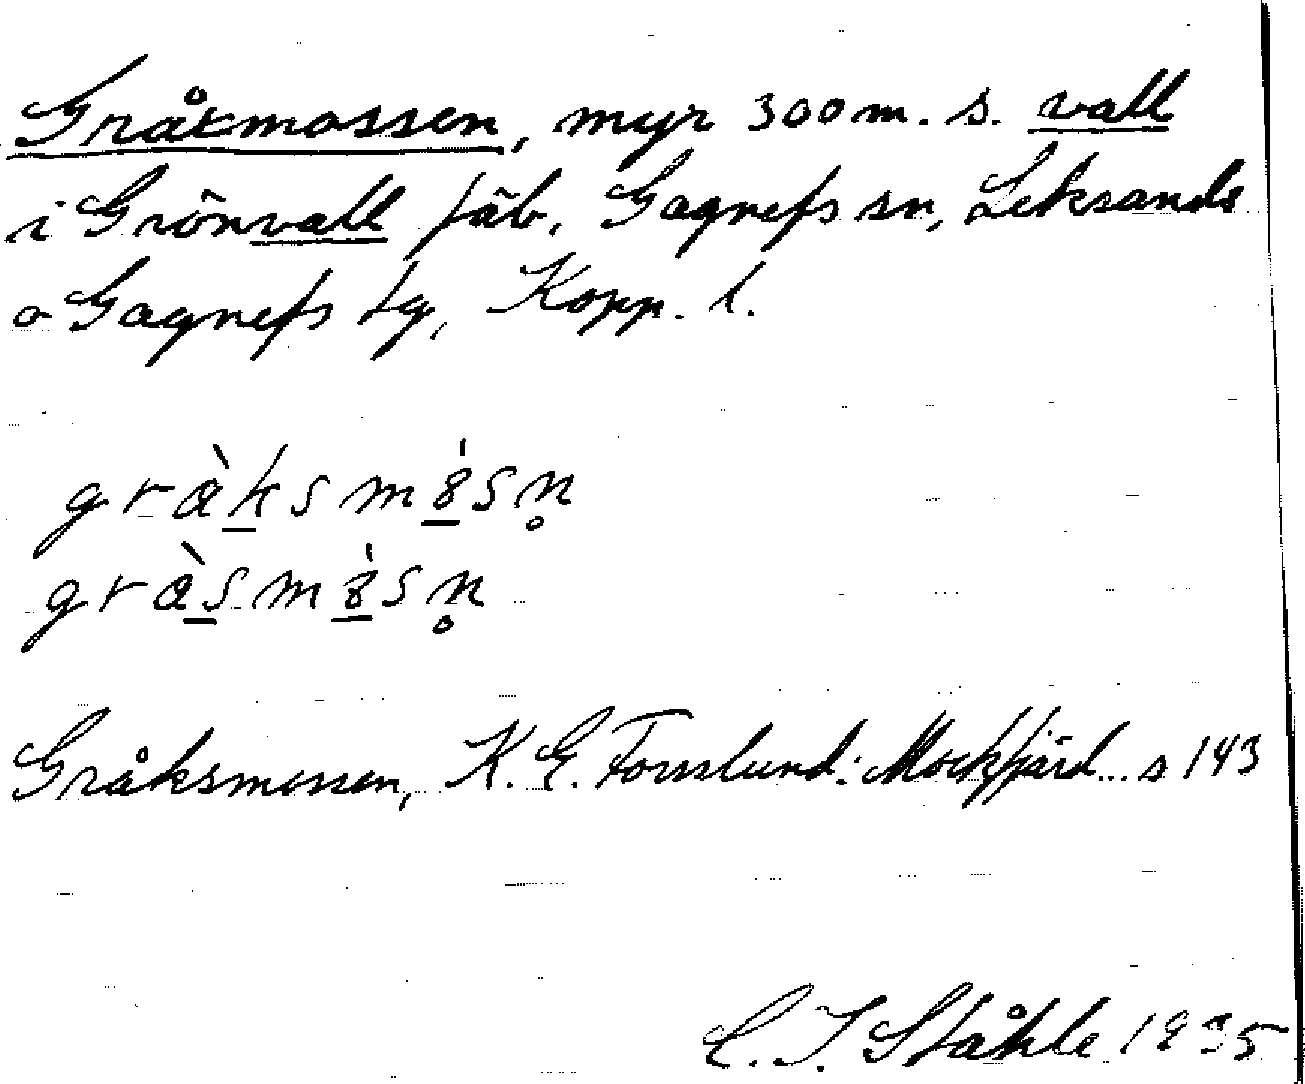 Gråkmossen, myr 300 m. s. vall
i Grönvall fäb. Gagnefs sn, Leksands
o Gagnefs tg, Kopp. l.
gràksmȣ̀sn̥
gràsmȣ̀sn̥
Gråksmossen, K. E. Forsslund: Mockfjärd s 143
C. I. Ståhle 1935